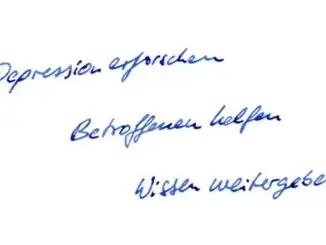 Depression erforschen
Betroffenen helfen
Wissen weitergebe